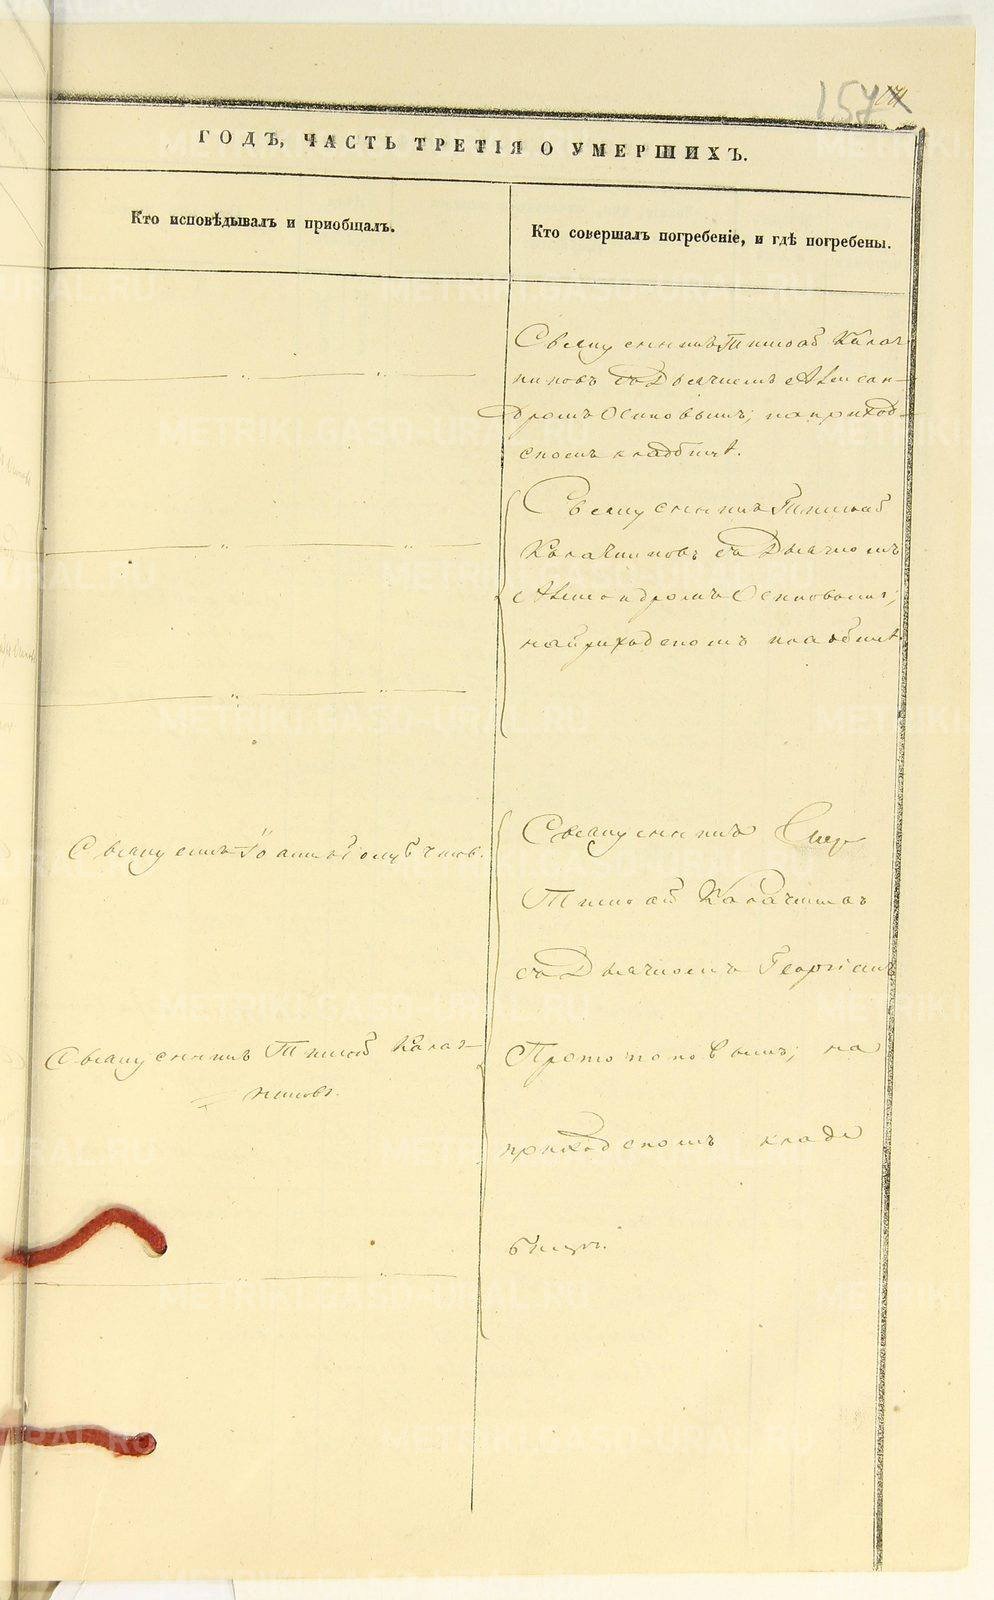 157
ГОДЪ, ЧАСТЬ ТРЕТІЯ О УМЕРШИХЪ.
Кто исповѣдывалъ и приобщалъ.
Кто совершалъ погребеніе, и гдѣ погребены.
Священникъ Тимоѳей Калач
никовъ съ Дьячкомъ Алексан-
дромъ Осиповымъ; на приход-
скомъ кладбищѣ.
Священникъ Тимоѳей
Калачниковъ съ Дьячкомъ
Александромъ Осиповымъ;
на приходскомъ кладбищѣ.
Священникъ Іоаннъ
Священникъ
Тимоѳей Калачниковъ
съ Дьячкомъ Георгіемъ
Священникъ Тимоѳей Калач-
никовъ.
Протопоповымъ; на
приходскомъ кладъ
бищѣ.
METRIKI.GASO-URAL.RU